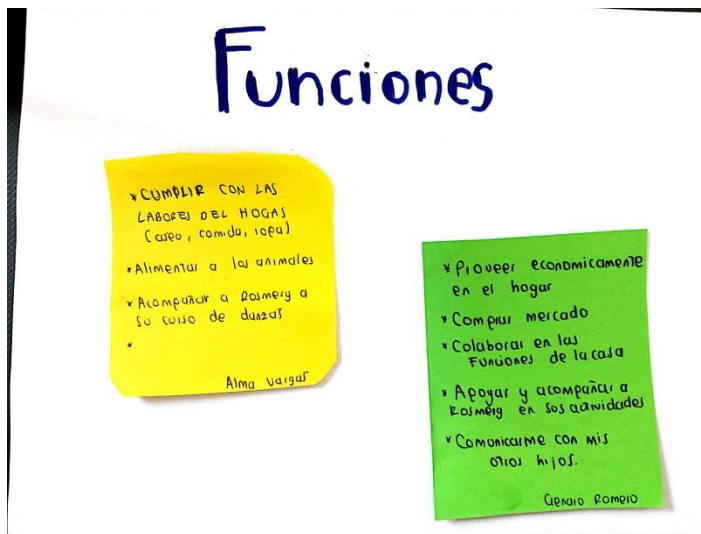 Funciones
* CUMPLIR CON LAS
LABORES DEL HOGAS
(aseo, comida, ropa)
* Alimentar a los animales
* Acompañar a Rosmery a
su curso de danzas
*
Alma Vargas
* Proveer economicamente
en el hogar
* Comprar mercado
* Colaborar en las
Funciones de la casa
* Apoyar y acompañar a
Rosmery en sos actividades
* Comonicarme con mis
otros hijos.
Romero